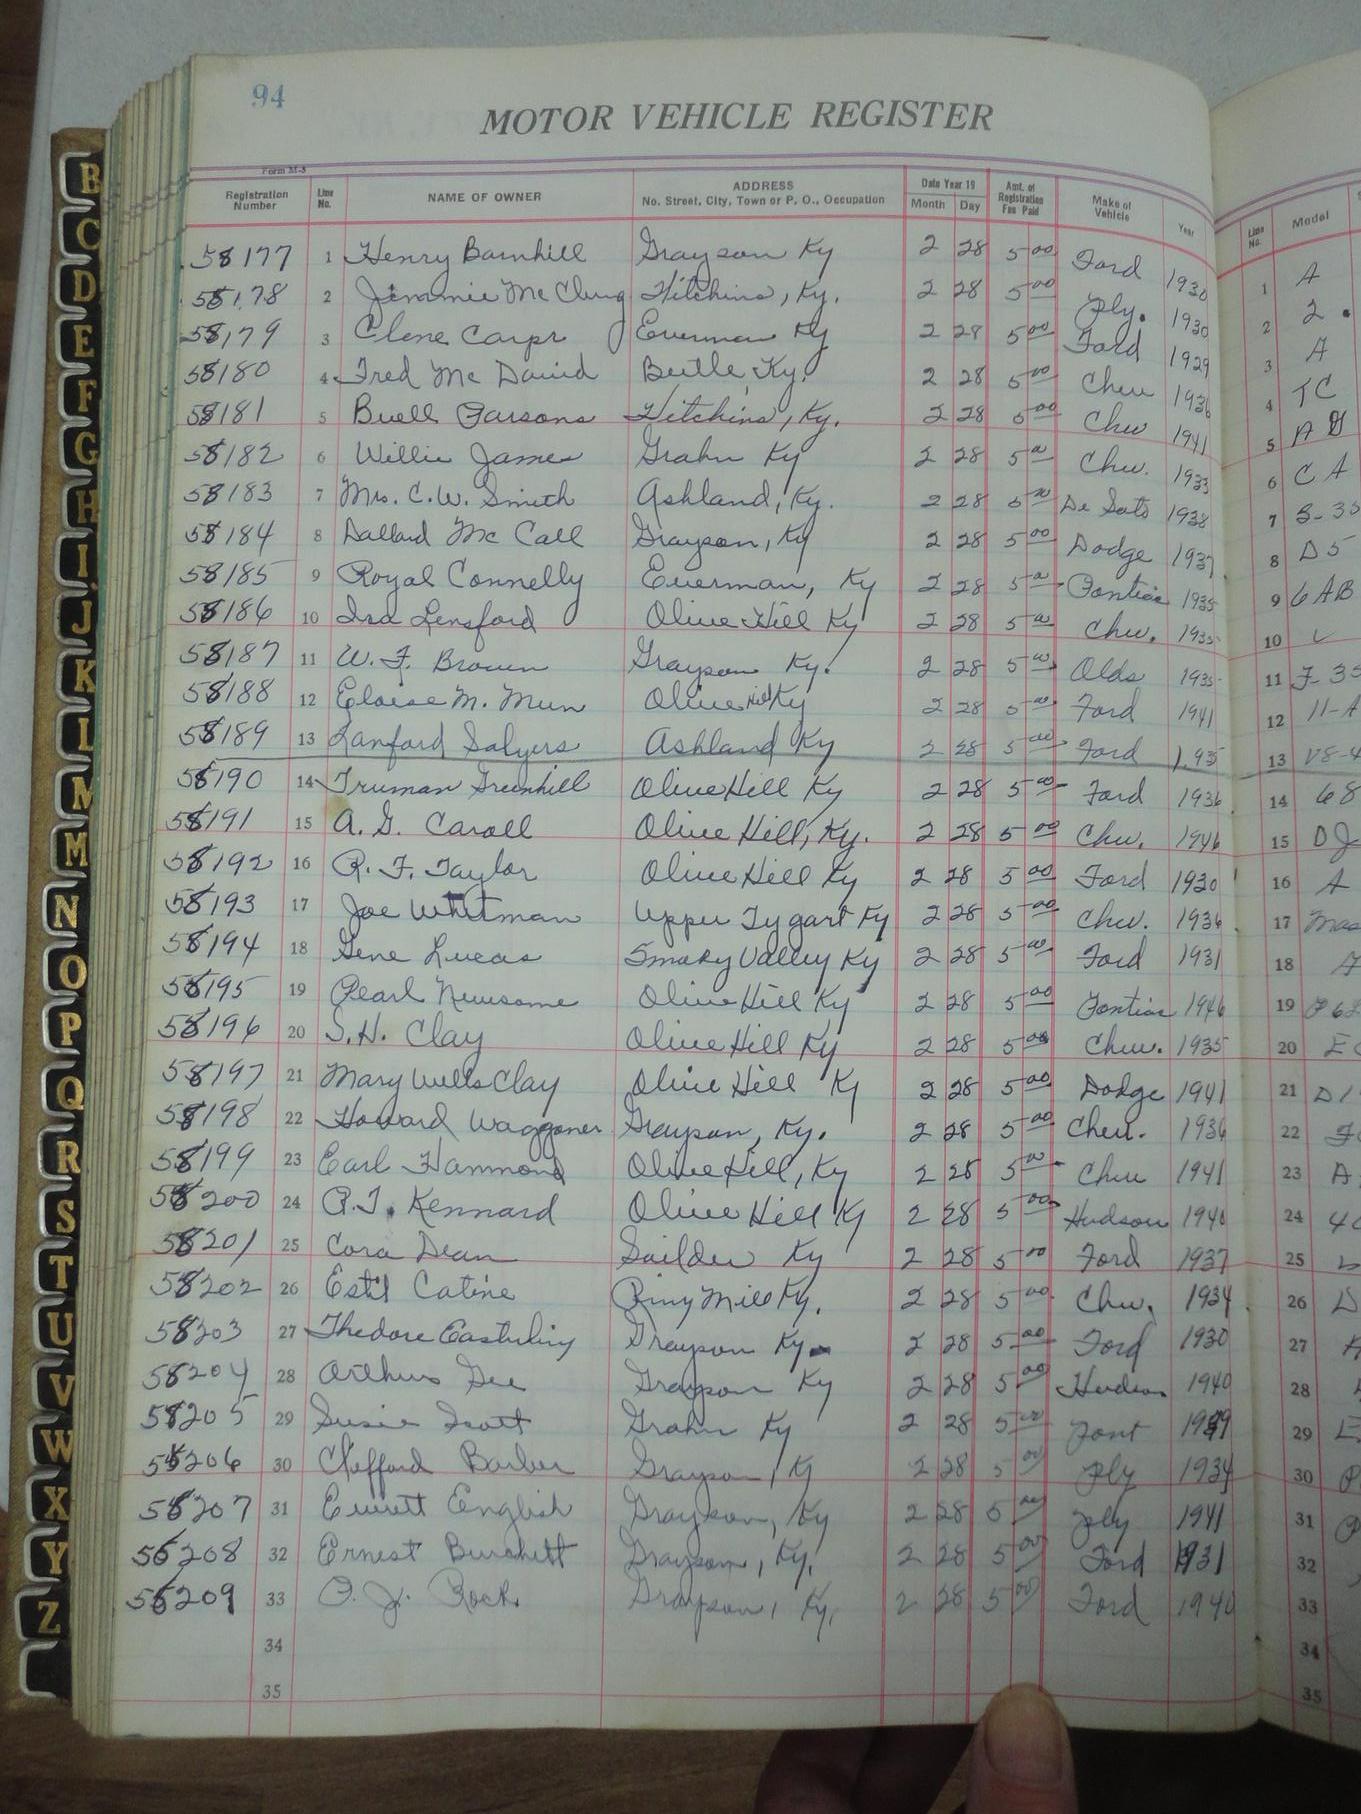 94
MOTOR VEHICLE REGISTER
Form M-8
Registration Number Line No. NAME OF OWNER ADDRESS No. Street, City, Town or P. O., Occupation Date Year 19 Month Day Amt. of Registration Fee Paid Make of Vehicle Year Line No. Model
58177 1 Henry Barnhill Grayson Ky 2 28 5 00 Ford 1930 1 A
58178 2 Jimmie McClung Hitchins, Ky. 2 28 5 00 Ply. 1930 2
58179 3 Clene Everman Ky 2 28 5 00 Ford 1929 3 A
58180 4 Fred Mc David Ky. 2 28 5 00 Chev 1936 4 TC
58181 5 Buell Parsons Hitchins, Ky. 2 28 5 00 Chev 1941 5
58182 6 Willie James Grahn Ky 2 28 5 00 Chev. 1933 6 CA
58183 7 Mrs. C.W. Smith Ashland, Ky. 2 28 5 00 De Soto 1938 7
58184 8 Dallard Mc Call Grayson, Ky 2 28 5 00 Dodge 1937 8 D5
58185 9 Royal Connelly Everman, Ky 2 28 5 00 Pontiac 1935 9 6AB
58186 10 Ira Lensford Olive Hill Ky 2 28 5 00 Chev. 1935 10
58187 11 W. F. Brown Grayson Ky. 2 28 5 00 Olds 1935 11
58188 12 Eloise M. Olive Hill Ky 2 28 5 00 Ford 1941 12
58189 13 Lanford Salyers Ashland Ky 2 28 5 00 Ford 1935 13
58190 14 Truman Greenhill Olive Hill Ky 2 28 5 00 Ford 1936 14 68
58191 15 A. G. Caroll Olive Hill, Ky. 2 28 5 00 Chev. 1946 15
58192 16 R. F. Taylor Olive Hill Ky 2 28 5 00 Ford 1930 16 A
58193 17 Joe Whitman Upper Tygart Ky 2 28 5 00 Chev. 1936 17
58194 18 Gene Lucas Smoky Valley Ky 2 28 5 00 Ford 1931 18
58195 19 Pearl Newsome Olive Hill Ky 2 28 5 00 Pontiac 1946 19
58196 20 S. H. Clay Olive Hill Ky 2 28 5 00 Chev. 1935 20
58197 21 Mary Wells Clay Olive Hill Ky 2 28 5 00 Dodge 1941 21
58198 22 Howard Waggoner Grayson, Ky. 2 28 5 00 Chev. 1936 22
58199 23 Earl Hammond Olive Hill, Ky 2 28 5 00 Chev 1941 23
58200 24 R. T. Kennard Olive Hill Ky 2 28 5 00 Hudson 1940 24
58201 25 Cora Dean Ky 2 28 5 00 Ford 1937 25
58202 26 Estil Catine Ky. 2 28 5 00 Chev. 1934 26
58203 27 Thedore Grayson Ky. 2 28 5 00 Ford 1930 27
58204 28 Arthur Gee Grayson Ky 2 28 5 00 Hudson 1940 28
58205 29 Susie Scott Grahn Ky 2 28 5 00 Pont 29
58206 30 Clifford Barber Grayson, Ky 2 28 5 00 Ply 1934 30
58207 31 Everett English Grayson, Ky 2 28 5 00 Ply 1941 31
58208 32 Ernest Burchett Grayson, Ky. 2 28 5 00 Ford 1931 32
58209 33 O. J. Rock Grayson, Ky. 2 28 5 00 Ford 1940 33
34 34
35 35
B
C
D
E
F
G
H
I
J
K
L
M
M
N
O
P
Q
R
S
T
U
V
W
X
Y
Z